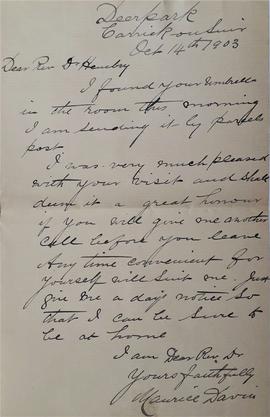 Deerpark
Carrick on Suir
Oct 14th 1903
Dear Rev. Dr
I found your umbrella
in the room this morning
I am sending it by parcels
post.
I was very much pleased
with your visit and shall
deem it a great honour
if you will give me another
call before you leave
Any time convenient for
yourself will suit me. Just
give me a days notice so
that I can be sure to
be at home
I am Dear Rev. Dr
Yours faithfully
Maurice Davin